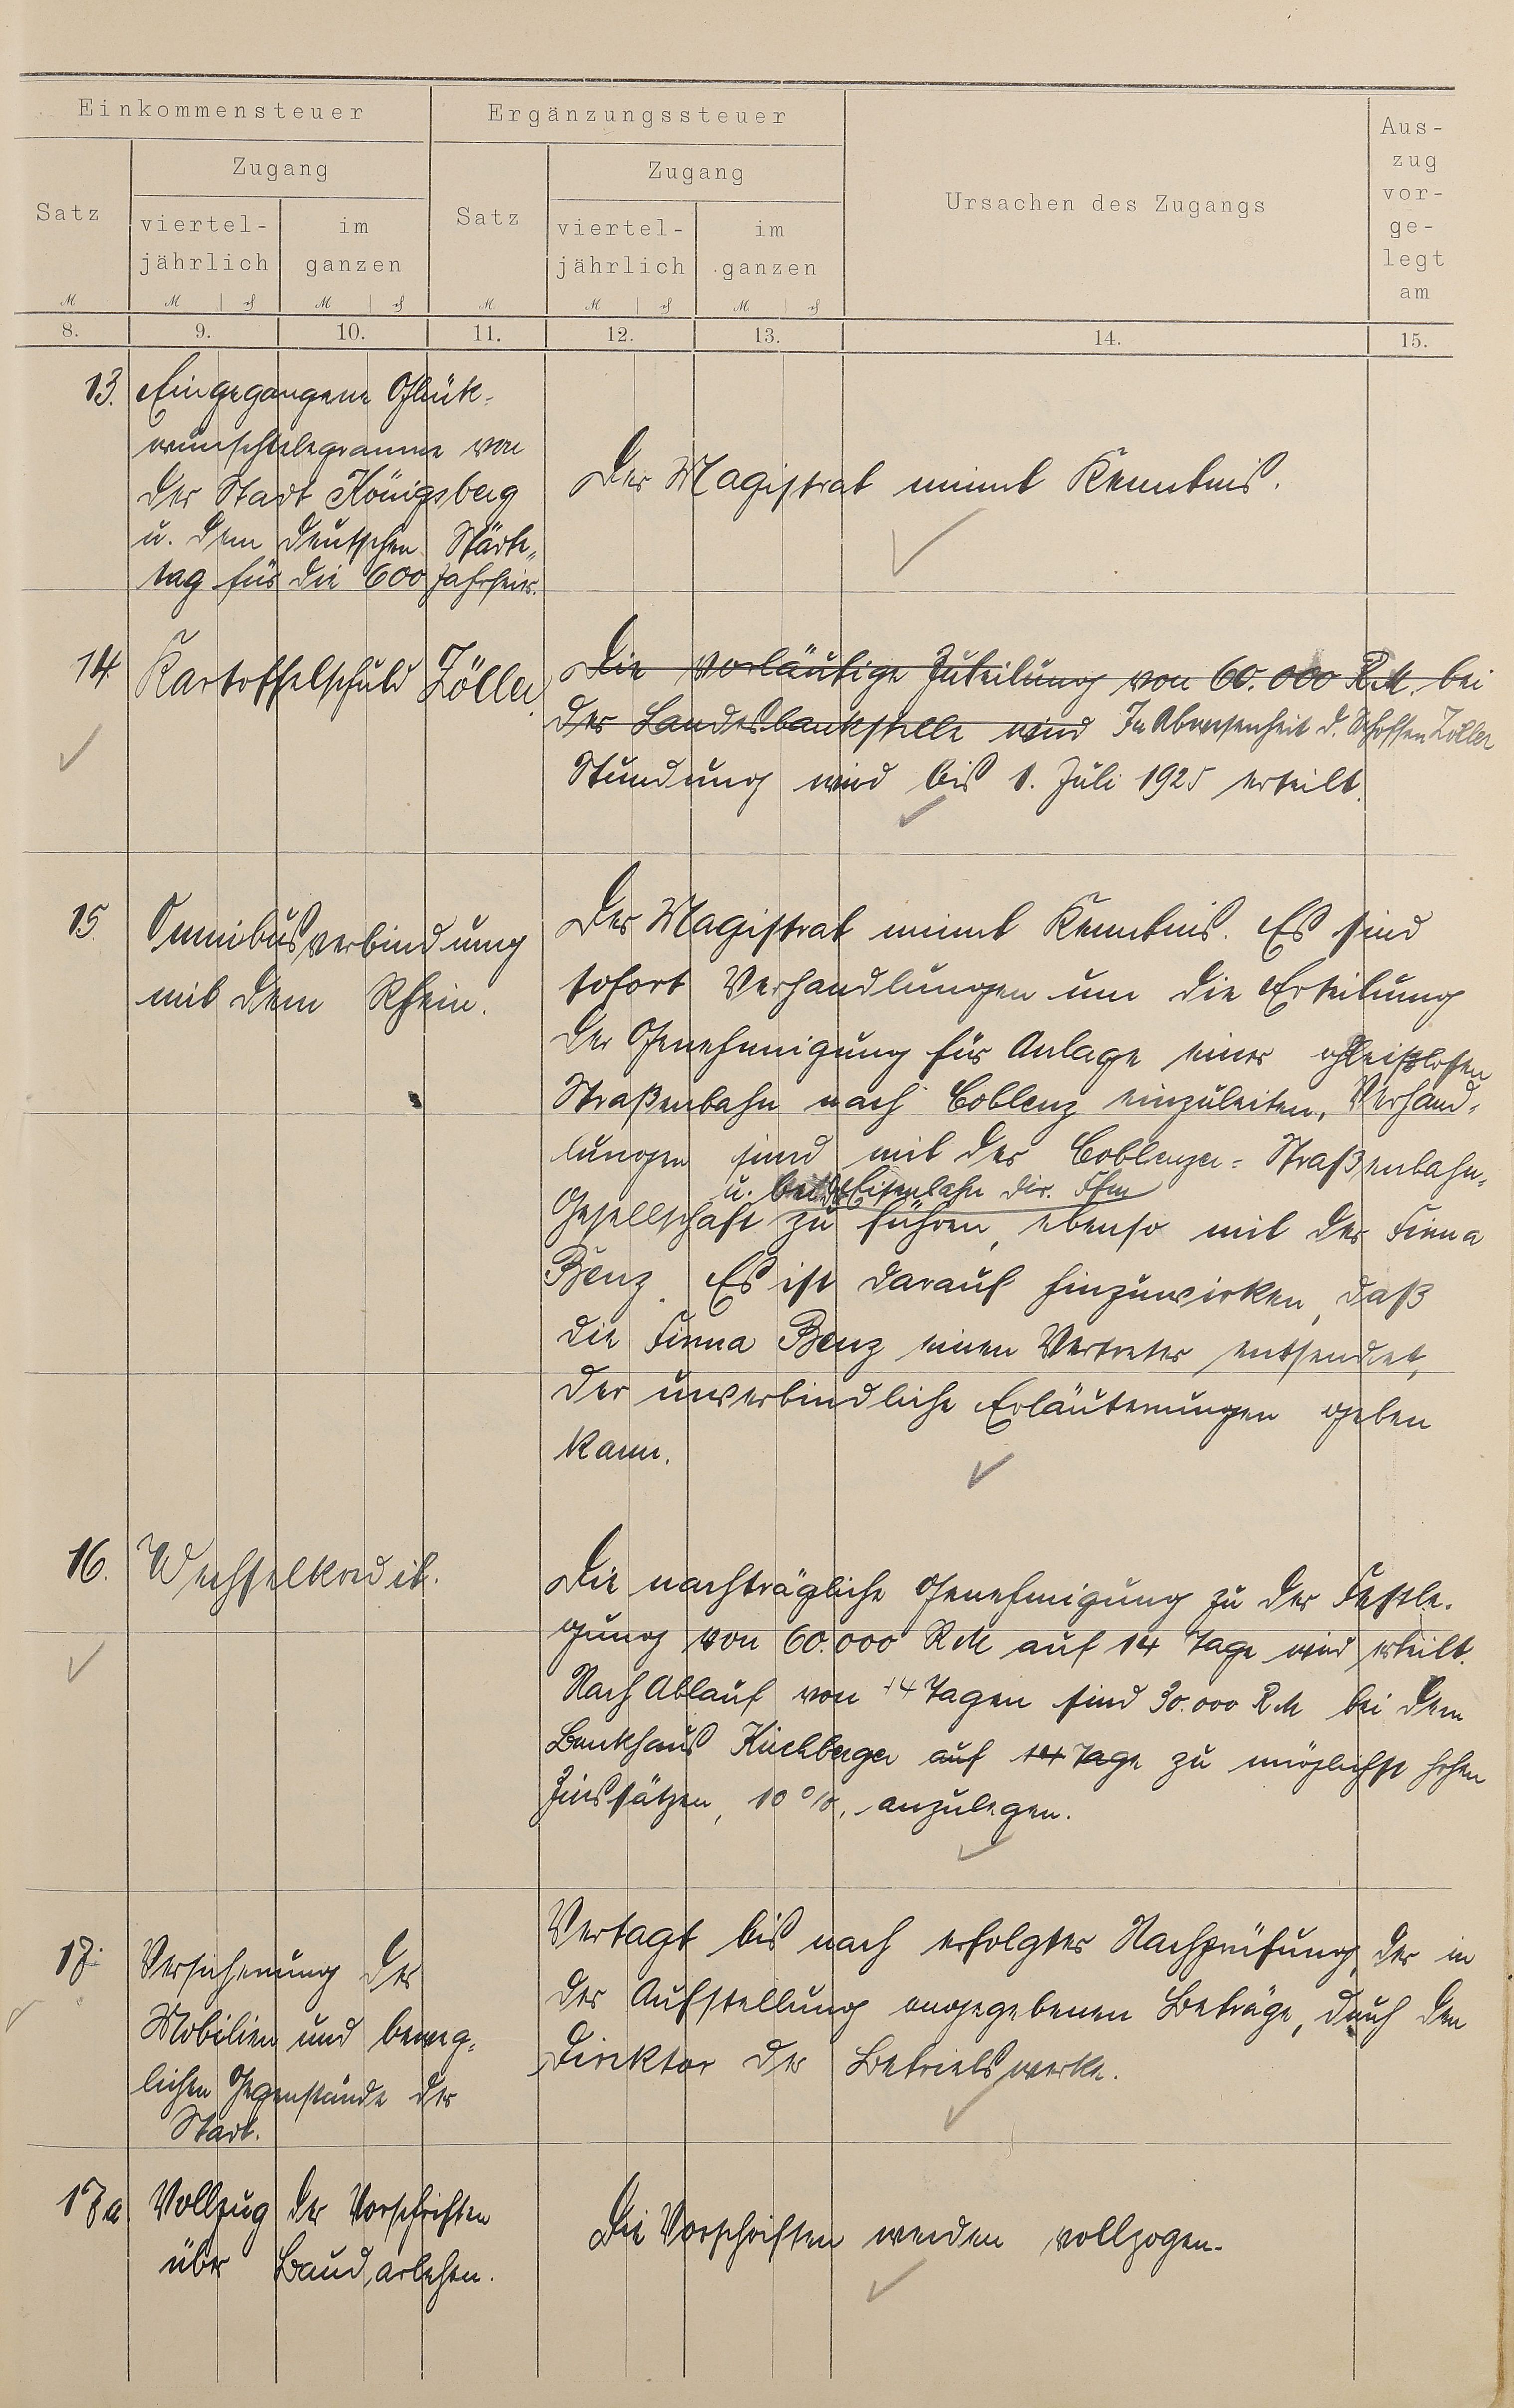 Einkommensteuer
Ergänzungssteuer
Ursachen des Zugangs
Aus-
zug
vor-
ge-
legt
am
Satz
Zugang
viertel-
jährlich
im
ganzen
Satz
Zugang
viertel-
jährlich
im
ganzen
8. 9. 10. 11. 12. 13. 14. 15.
13. Eingegangene Glük-
wunschtelegramme von
der Stadt Königsberg
u. dem deutschen Städte-
tag für die 600 Jahrfeier.
Der Magistrat nimmt Kenntnis.
14. Kartoffelschuld Zöller.
Die vorläufige Zuteilung von 60.000 RM. bei
der Landesbankstelle wird In Abwesenheit d. Schöffen Zöller
Stundung wird bis 1. Juli 1925 erteilt.
15. Omnibusverbindung
mit dem Rhein.
Der Magistrat nimmt Kenntnis. Es sind
sofort Verhandlungen um die Erteilung
der Genehmigung für Anlage einer gleißlosen
Straßenbahn nach Coblenz einzuleiten. Verhand-
lungen sind mit der Coblenzer-Straßenbahn-
u. bei der Eisenbahn dir. Ffm
Gesellschaft zu führen, ebenso mit der Firma
Benz. Es ist darauf hinzuwirken, daß
die Firma Benz einen Vertreter entsendet,
der unverbindliche Erläuterungen geben
kann.
16. Wechselkredit.
Die nachträgliche Genehmigung zu der Festle-
gung von 60.000 RM auf 14 Tage wird erteilt.
Nach Ablauf von 14 Tagen sind 30.000 RM bei dem
Bankhaus Kirchberger auf 14 Tage zu möglichst hohen
Zinssätzen, 10%, anzulegen.
17. Versicherung der
Mobilien und beweg-
lichen Gegenstände der
Stadt.
Vertagt bis nach erfolgter Nachprüfung der in
der Aufstellung angegebenen Beträge, durch den
Direktor der Betriebswerke.
17a Vollzug der Vorschriften
über Baudarlehen.
Die Vorschriften werden vollzogen.